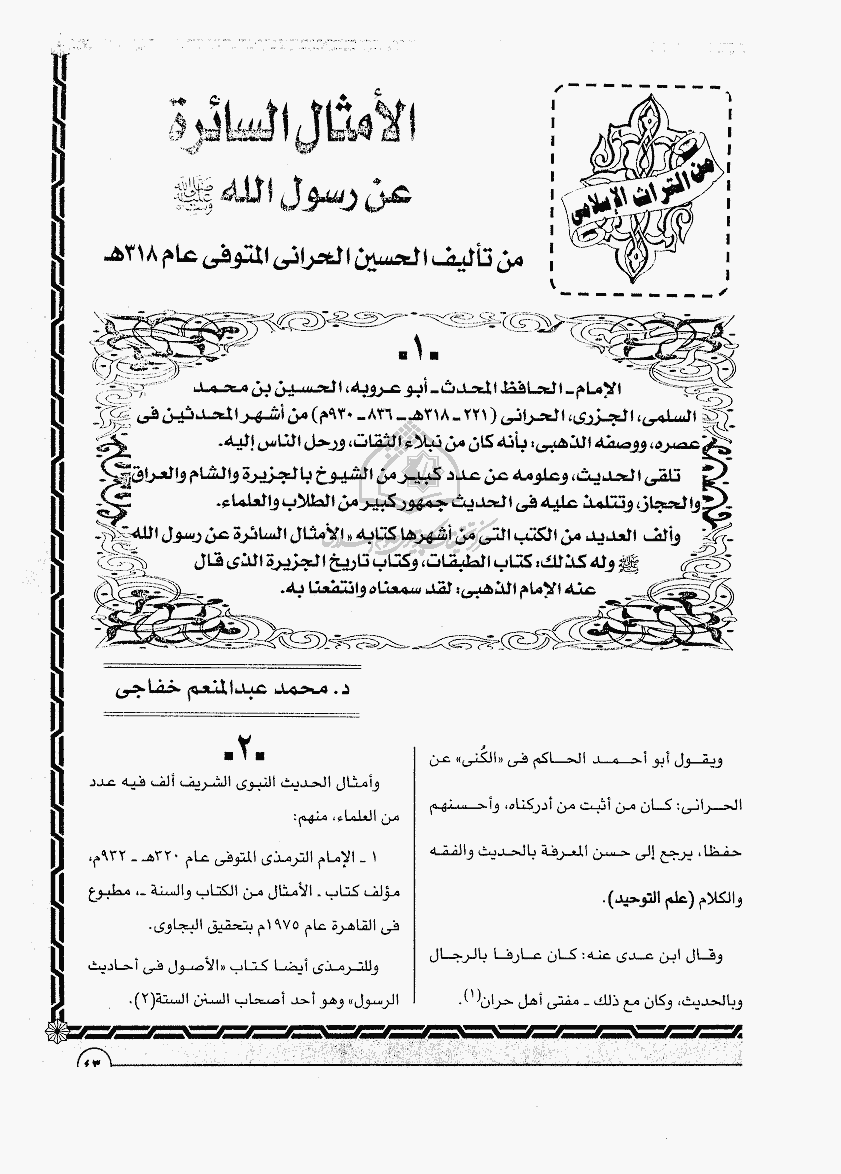 من التراث الإسلامى
الأمثال السائرة
عن رسول الله ﷺ
من تأليف الحسين الحرانى المتوفى عام ٣١٨هـ
.١.
الإمام ـ الحافظ المحدث ـ أبو عروبه، الحسين بن محمد
السلمى، الجزرى، الحرانى (٢٢١ ـ ٣١٨هـ ـ ٨٣٦ ـ ٩٣٠م) من أشهر المحدثين فى
عصره، ووصفه الذهبى: بأنه كان من نبلاء الثقات، ورحل الناس إليه.
تلقى الحديث، وعلومه عن عدد كبير من الشيوخ بالجزيرة والشام والعراق
والحجاز، وتتلمذ عليه فى الحديث جمهور كبير من الطلاب والعلماء.
وألف العديد من الكتب التى من أشهرها كتابه «الأمثال السائرة عن رسول الله
ﷺ وله كذلك: كتاب الطبقات، وكتاب تاريخ الجزيرة الذى قال
عنه الإمام الذهبى: لقد سمعناه وانتفعنا به.
د. محمد عبدالمنعم خفاجى
ويقول أبو أحمد الحاكم فى «الكُنى» عن
الحرانى: كان من أثبت من أدركناه، وأحسنهم
حفظا، يرجع إلى حسن المعرفة بالحديث والفقه
والكلام (علم التوحيد).
وقال ابن عدى عنه: كان عارفا بالرجال
وبالحديث، وكان مع ذلك ـ مفتى أهل حران(١).
.٢.
وأمثال الحديث النبوى الشريف ألف فيه عدد
من العلماء، منهم:
١ ـ الإمام الترمذى المتوفى عام ٣٢٠هـ ـ ٩٣٢م،
مؤلف كتاب ـ الأمثال من الكتاب والسنة ـ، مطبوع
فى القاهرة عام ١٩٧٥م بتحقيق البجاوى.
وللترمذى أيضا كتاب «الأصول فى أحاديث
الرسول» وهو أحد أصحاب السنن الستة(٢).
٤٣